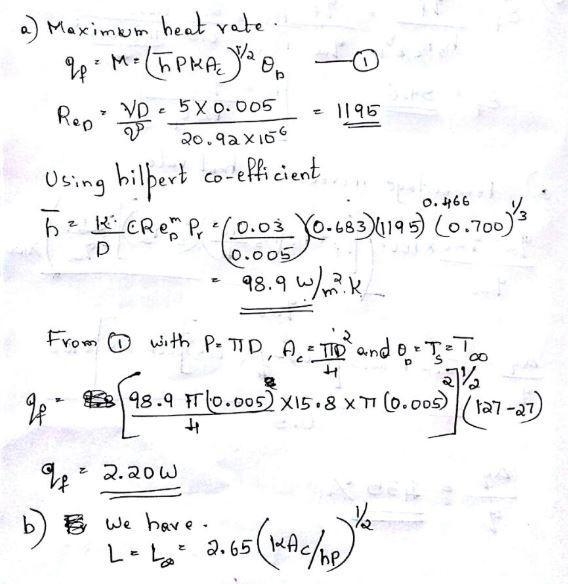 a) Maximum heat rate.
qf = M = (h̄PKAc)^1/2 θb —①
ReD = VD/ν = 5 X 0.005 / 20.92 X 10^-6 = 1195
Using hilpert co-efficient
h̄ = K/D C ReD^m Pr^1/3 = (0.03/0.005)(0.683)(1195)^0.466 (0.700)^1/3
= 98.9 W/m².K
From ① with P = πD, Ac = πD²/4 and θb = Ts - T∞
qf = [98.9 π(0.005) X 15.8 X π (0.005)² / 4]^1/2 (127-27)
qf = 2.20W
b) We have.
L = L∞ = 2.65 (KAc/hp)^1/2